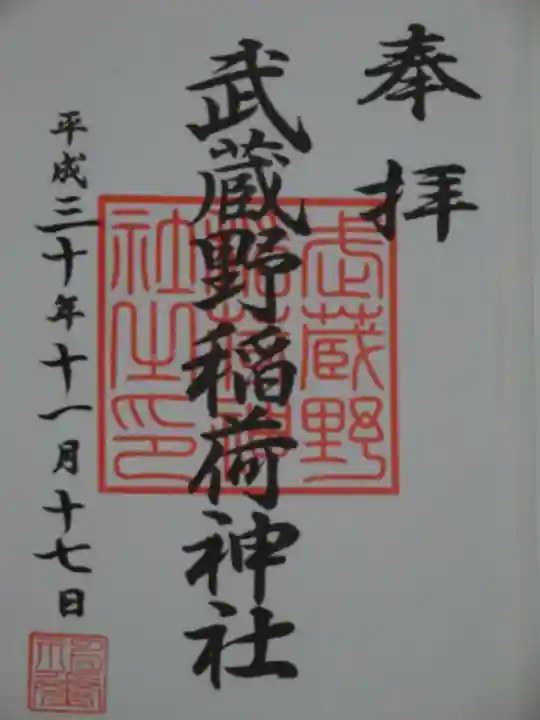 奉拝
武蔵野稲荷神社
平成三十年十一月十七日
武蔵野
稲荷神
社之印